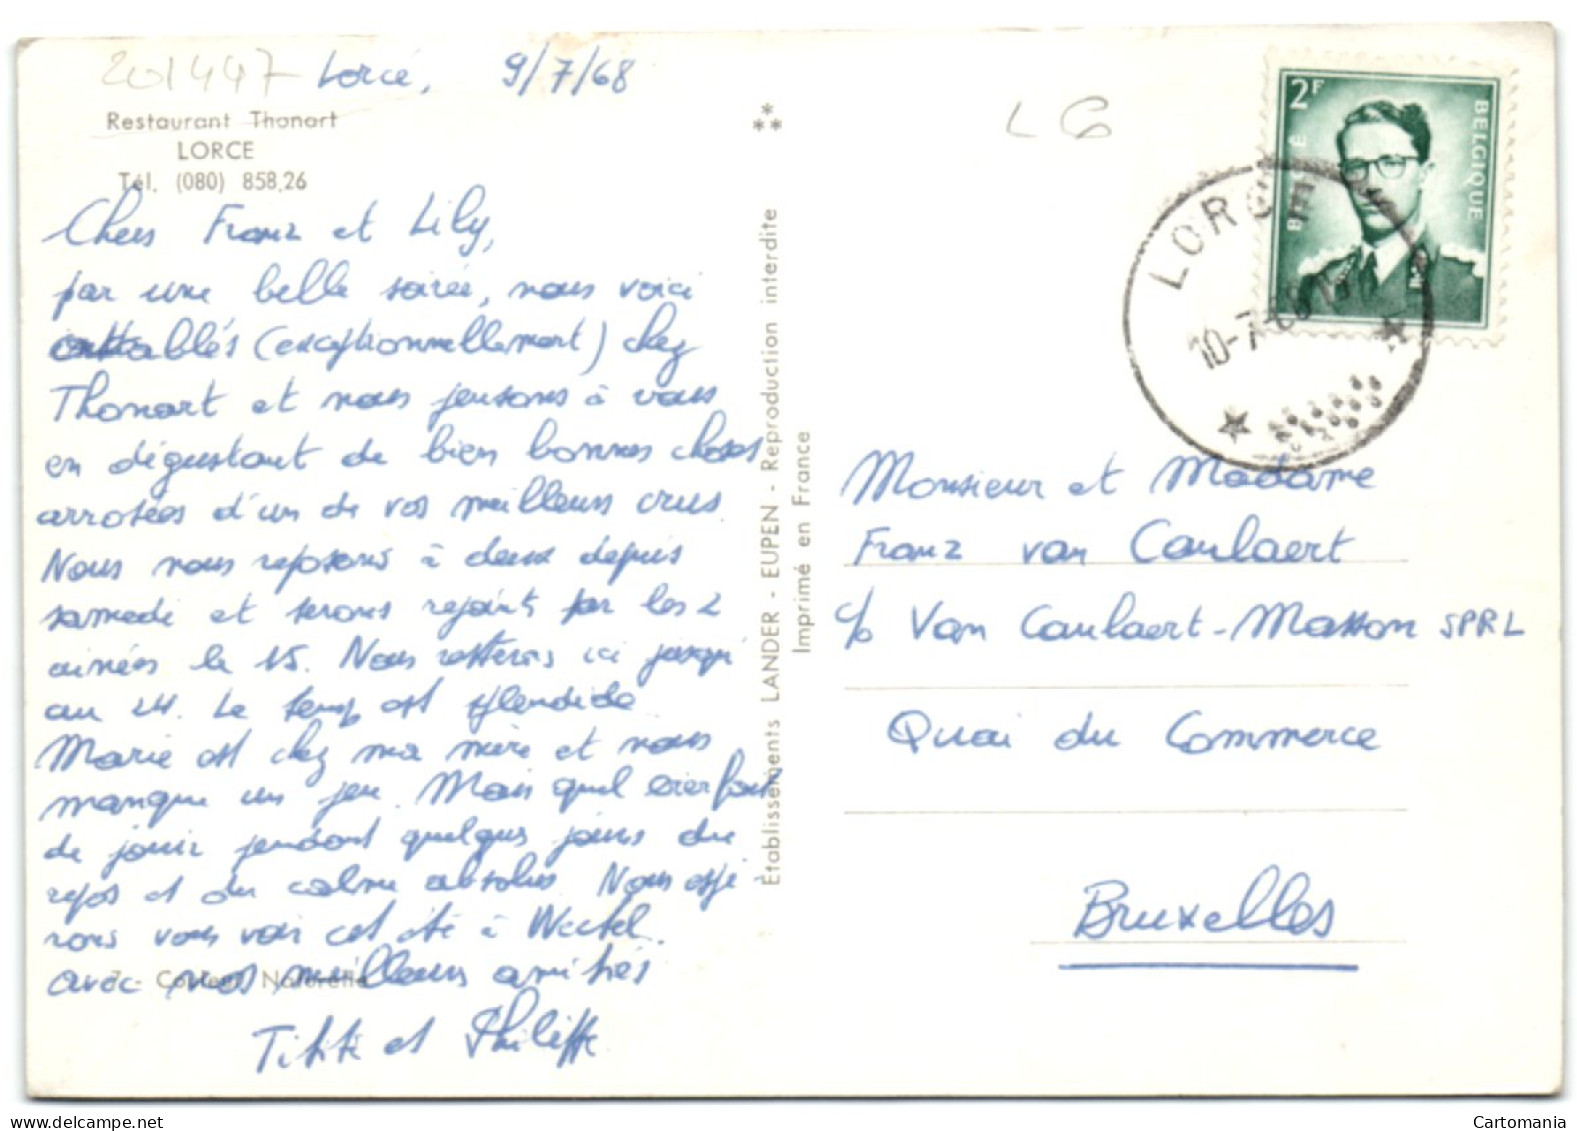 201447 Lorcé, 9/7/68
Restaurant Thonart
LORCE
Tél. (080) 858,26
Chers Franz et Lily,
par une belle soirée, nous voici
attablés (exceptionnellement) chez
Thonart et nous pensons à vous
en dégustant de bien bonnes choses
arrosées d'un de vos meilleurs crus.
Nous nous reposons à deux depuis
samedi et serons rejoints par les 2
ainées le 15. Nous resterons ici jusqu'
au 24. Le temps est splendide
Marie est chez ma mère et nous
manque un peu. Mais quel
de jouir pendant quelques jours du
repos et du calme absolus. Nous espé
rons vous voir cet été à
avec nos meilleurs amitiés
Titti et Philippe
7 - Couleur Naturelle
Établissements LANDER - EUPEN - Reproduction interdite
Imprimé en France
LG
2F
BELGIQUE
BELGIË
LORCE
10-7-68
Monsieur et Madame
Franz van Caulaert
c/o Van Caulaert-Masson SPRL
Quai du Commerce
Bruxelles
Cartomania